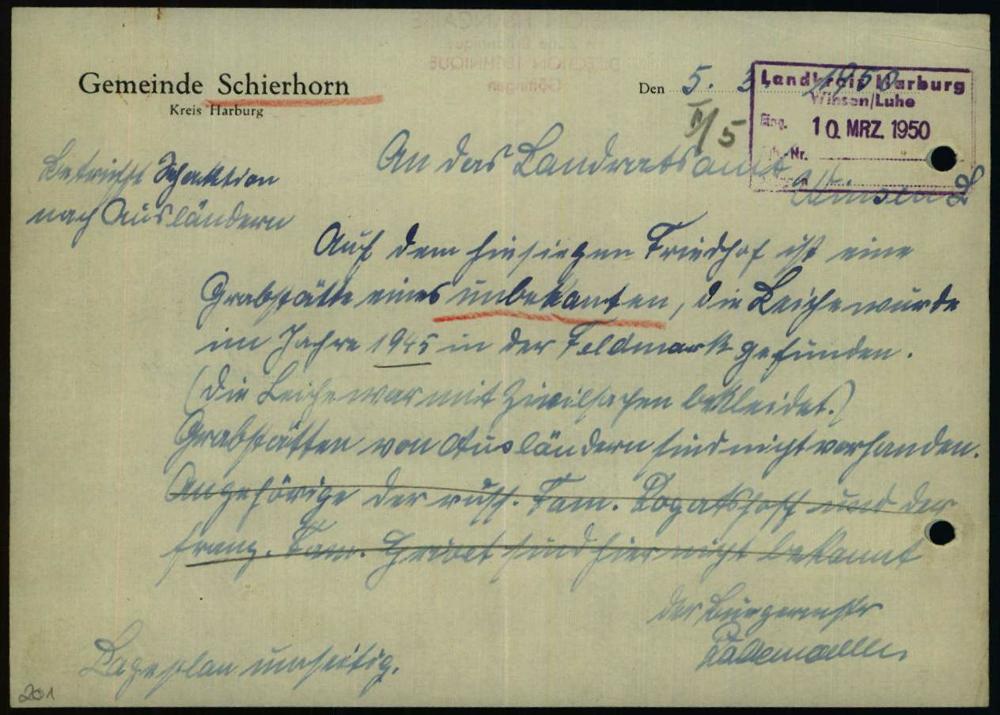 Gemeinde Schierhorn
Kreis Harburg
Den 5. 3. 1950
Landkreis Harburg
Winsen/Luhe
Eing. 10. MRZ. 1950
Nr.
II/5
An das Landratsamt
Winsen L
Betrifft
nach Ausländern
Auf dem hiesigen Friedhof ist eine
Grabstätte eines unbekanten, die Leiche wurde
im Jahre 1945 in der Feldmark gefunden.
(Die Leiche war mit Zivilsachen bekleidet.)
Grabstätten von Ausländern sind nicht vorhanden.
Angehörige der russ. Fam. und der
franz. Fam. sind hier nicht bekannt
der Bürgermstr
Lageplan umseitig.
201